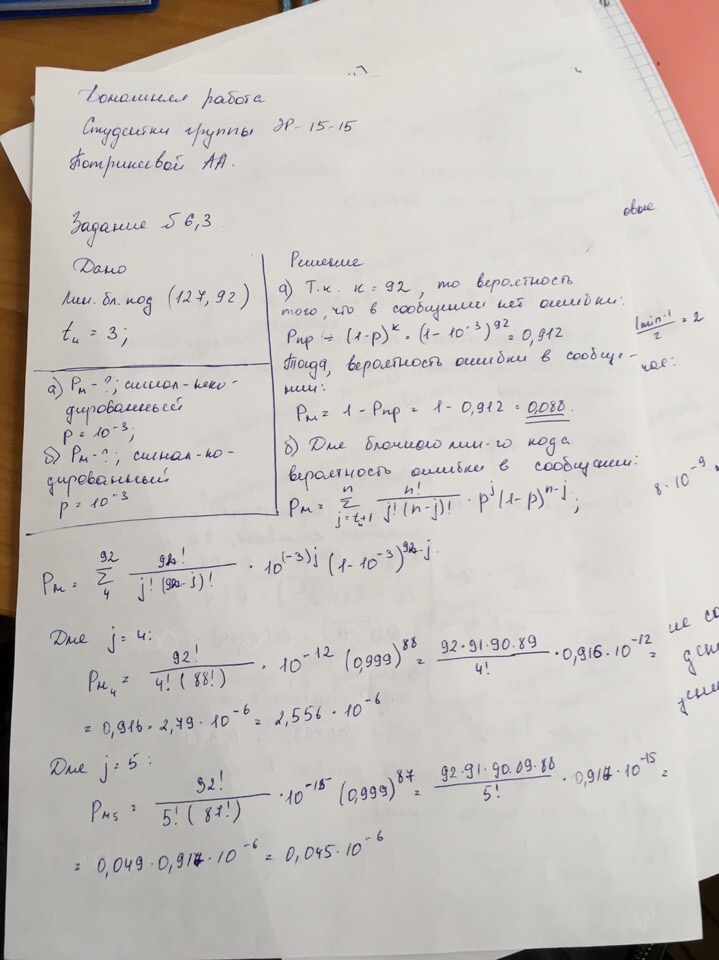 Домашняя работа
Студентки группы ЭР-15-15
АА.
Задание №6,3
Дано
лин. бл. код (127,92)
tи = 3;
а) Pм - ?; сигнал - неко-
дированный
p = 10⁻³;
б) Pм - ?; сигнал - ко-
дированный
p = 10⁻³
Решение
а) Т.к. к = 92, то вероятность
того, что в сообщении нет ошибки:
Pпр = (1-p)ᵏ = (1-10⁻³)⁹² = 0,912
Тогда, вероятность ошибки в сообще-
нии:
Pм = 1 - Pпр = 1 - 0,912 = 0,088.
б) Для блочного лин-го кода
вероятность ошибки в сообщении:
Pм = Σ n j=tи+1 n! / j!(n-j)! · pʲ(1-p)ⁿ⁻ʲ;
Pм = Σ 92 4 92! / j!(92-j)! · 10⁽⁻³⁾ʲ (1-10⁻³)⁹²⁻ʲ.
Для j = 4:
Pм₄ = 92! / 4!(88!) · 10⁻¹² (0,999)⁸⁸ = 92·91·90·89 / 4! · 0,916·10⁻¹² =
= 0,916 · 2,79 · 10⁻⁶ = 2,556 · 10⁻⁶
Для j = 5:
Pм₅ = 92! / 5!(87!) · 10⁻¹⁵ (0,999)⁸⁷ = 92·91·90·89·88 / 5! · 0,917·10⁻¹⁵ =
= 0,049 · 0,917 · 10⁻⁶ = 0,045 · 10⁻⁶
овые
lmin-1 / 2 = 2
ное:
8·10⁻⁹
не со